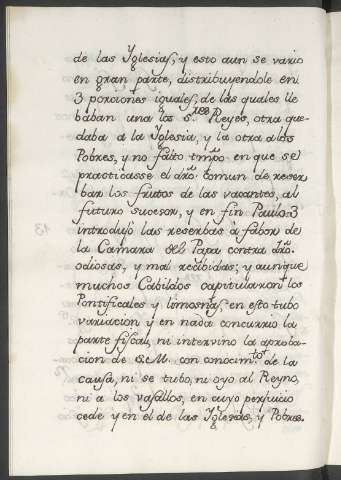 de las Yglesias, y esto aun se vario
en gran parte, distribuyendole en
3 porciones iguales, de las quales lle
baban una los s.res Reyes, otra que-
daba a la Yglesia, y la otra a los
Pobres, y no falto tmpo en que se
practicasse el dro comun de reser
bar los frutos de las vacantes, al
futuro sucesor, y en fin Paulo 3
introdujo las reserbas à fabor de
la Camara del Papa contra dro.
odiosas, y mal recibidas; y aunque
muchos Cabildos capitularon los
Pontificales y limosnas, en esto tubo
variacion y en nada concurrio la
parte fiscal, ni intervino la aproba-
cion de S.M. con conocim.to de la
causa, ni se tubo, ni oyo al Reyno,
ni a los vasallos, en cuyo perjuicio
cede y en el de las Yglesias, y Pobres.